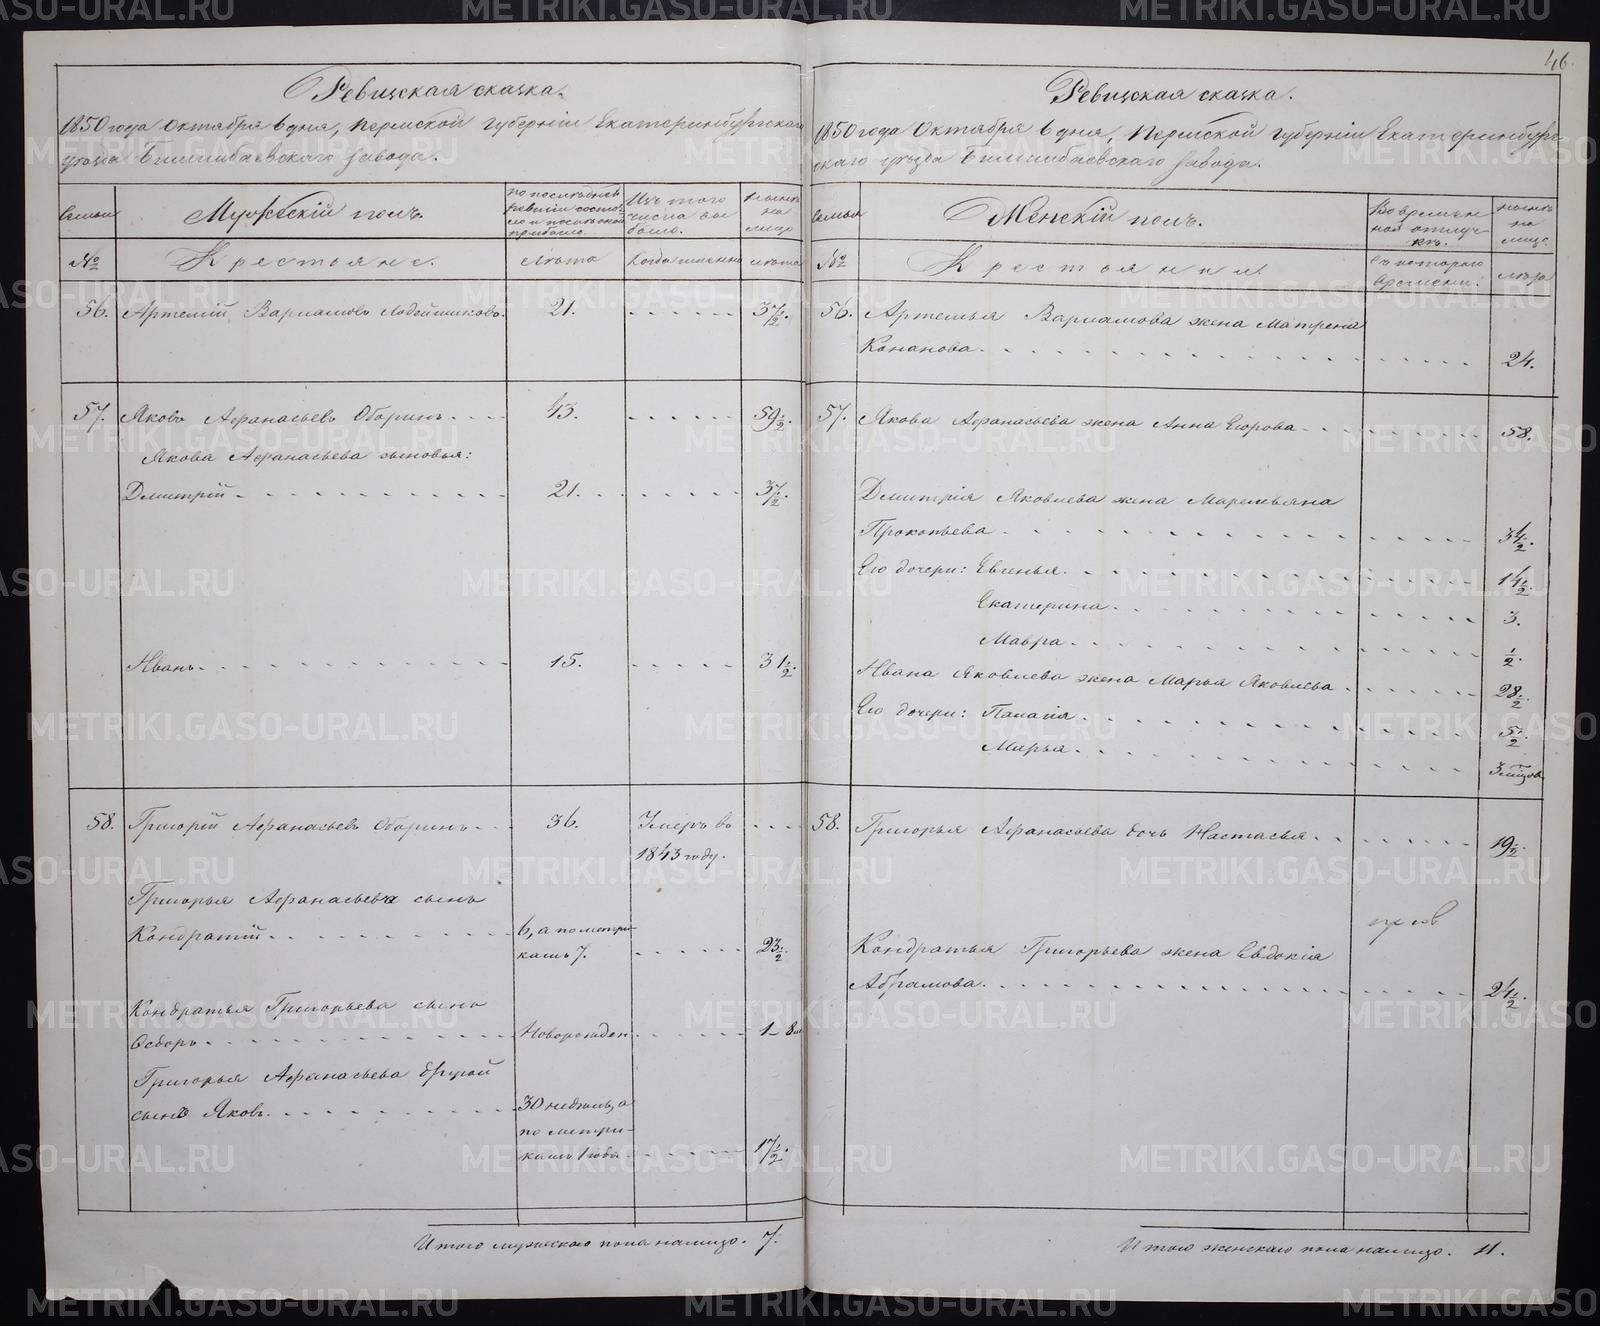 46.
Ревизская сказка.
1850 года Октября 6 дня, Пермской губернiи Екатеринбургскаго
уѣзда Билимбаевскаго завода.
Семьи
Мужескiй полъ.
по послѣдней
ревизiи состо-
яло и послѣ оной
прибыло.
Изъ того
числа вы
было.
нынѣ
на
лицо
№
Крестьяне.
Лѣта
Когда именно
лѣта
56. Артемiй Варламовъ Лодейщиковъ. 21. 37½.
57. Яковъ Афанасьевъ Оборинъ. 43. 59½.
Якова Афанасьева сыновья:
Дмитрiй 21. 37½.
Иванъ. 15. 31½.
58. Григорiй Афанасьевъ Оборинъ. 36. Умеръ въ
1843 году.
Григорья Афанасьева сынъ
Кондратiй 6, а по метри-
камъ 7. 23½.
Кондратья Григорьева сынъ
Ѳедоръ Новорожден 1-8м
Григорья Афанасьева другой
сынъ Яковъ. 30 недѣль, а
по метри-
камъ 1 года 17½.
Итого мужескаго пола налицо. 7.
Ревизская сказка.
1850 года Октября 6 дня, Пермской губернiи Екатеринбург-
скаго уѣзда Билимбаевскаго завода.
Семьи
Женскiй полъ.
Во времен
ной отлуч-
кѣ.
нынѣ
на
лицо
№
Крестьянки.
Съ котораго
времени.
лѣта
56. Артемья Варламова жена Матрена
Кононова. 24.
57. Якова Афанасьева жена Анна Егорова 58.
Дмитрiя Яковлева жена Маремьяна
Прокопьева 34½.
Его дочери: Евгенья. 14½.
Екатерина. 3.
Мавра. ½.
Ивана Яковлева жена Марья Яковлева 28½.
Его дочери: Палагiя. 5½.
Марья. 3 мѣсяцов
58. Григорья Афанасьева дочь Настасья. 19½.
Кондратья Григорьева жена Евдокiя
Абрамова. 21½.
Итого женскаго пола налицо. 11.
METRIKI.GASO-URAL.RU